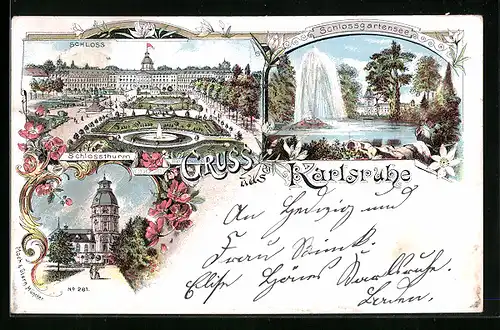 SCHLOSS
Schlossgartensee
Schlossthurm
GRUSS aus Karlsruhe
An Hedwig und
Frau
Elise Karlsruhe.
Baden.
No 261.